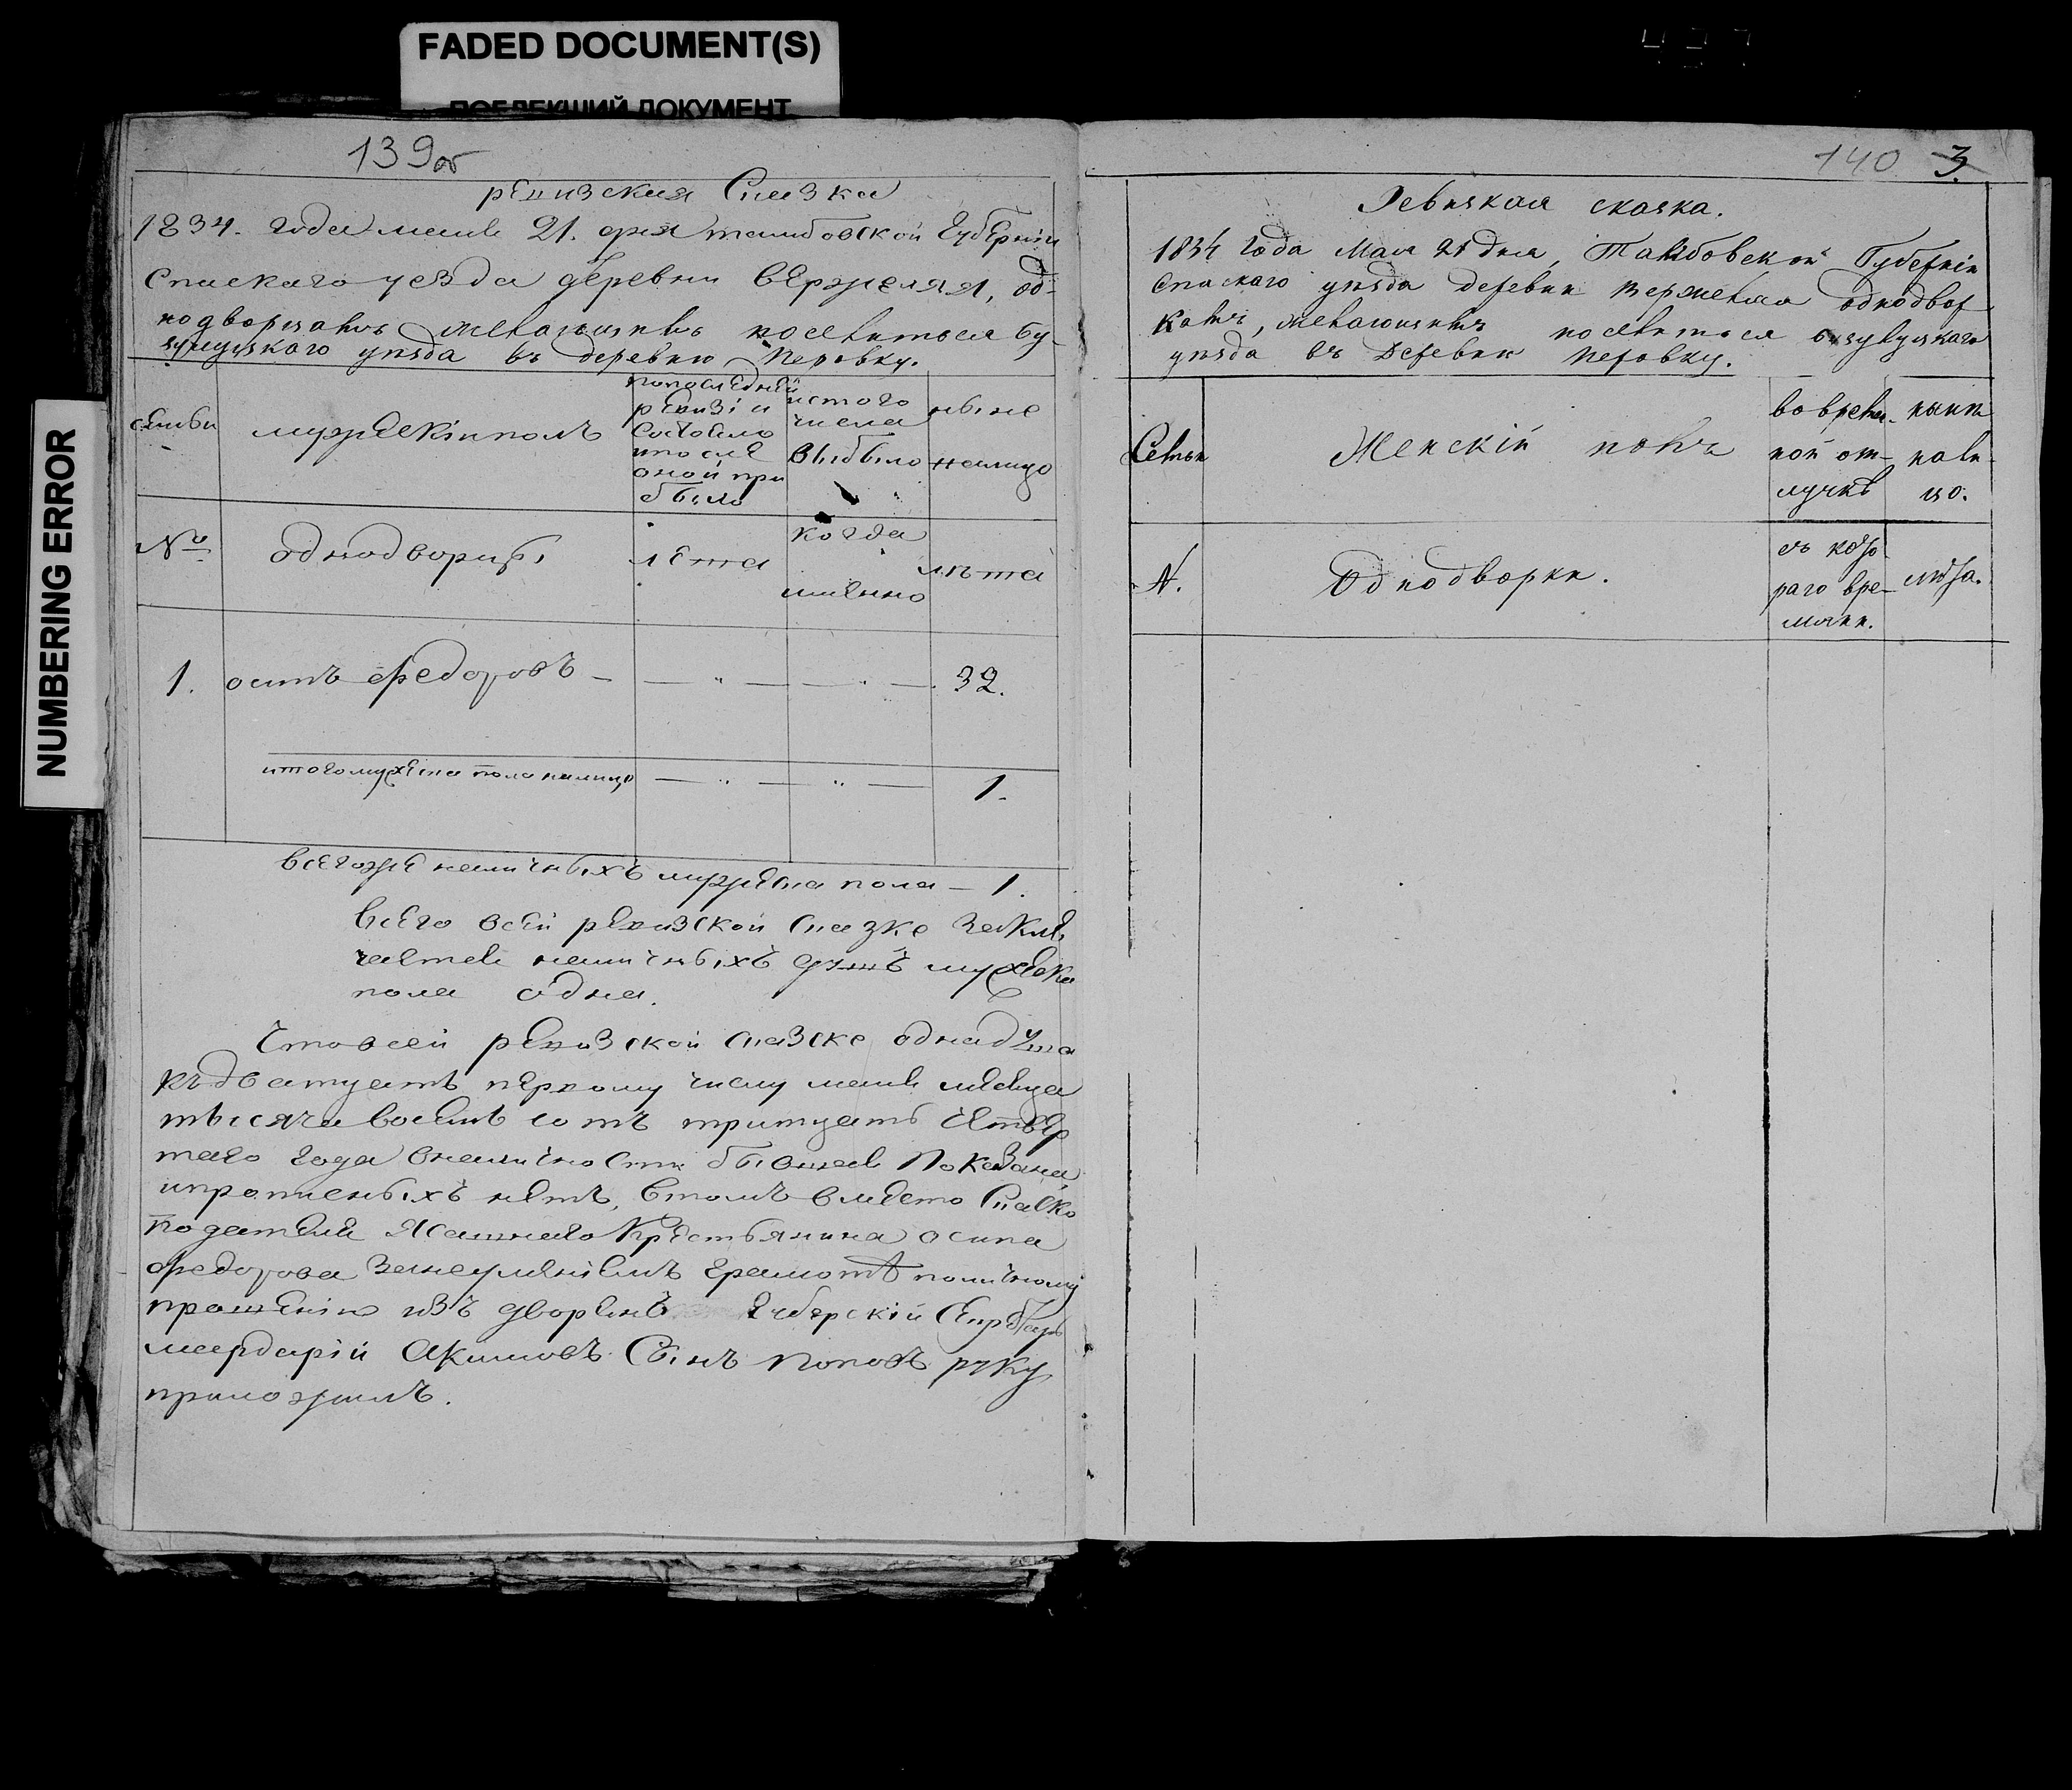 FADED DOCUMENT(S)
ПОБЛЕКШИЙ ДОКУМЕНТ
NUMBERING ERROR
139об
ревизская Сказка
1834. года маия 21. дня тамбовской губернии
Спаскаго уезда деревни вержеляя, од-
нодворцамъ желающимъ поселиться Бу-
зулуцкаго уѣзда въ деревню Перовку.
семьи
мужескiи полъ
попоследней
ревизiи
Состояло
ипосле
оной при
было
истого
числа
выбыло
ныне
налицо
№
однодворцы
лета
когда
имянно
лѣта
1.
осипъ Федоровъ — — " — — " — 32.
итогомужеска пола налицо — " — " — 1.
всегоже наличныхъ мужеска пола — 1.
всего всей ревизской сказке заклю
чается наличныхъ душъ мужеска
пола одна.
Чтовсей ревизской сказке однадуша
къдватцать первому числу маия месяца
тысяча восемь сотъ тритцать Четвер
таго года вналичности бывшая показана
ипрописныхъ нетъ, втомъ вместо Сказко
подателя Ясашнаго Крестьянина осипа
федорова занеумениемъ грамоте поличному
прошению изъ дворянъ Губерский Секретарь
мардарий Акимовъ Сынъ Поповъ руку
приложилъ.
140 3.
Ревизкая сказка.
1834 года Мая 21 дня, Тамбовской Губернiи
Спаскаго уѣзда деревни Вержеляя однодвор
камъ, желающимъ поселиться бузулуцкаго
уѣзда въ деревни Перовку.
Семьи
Женскiй полъ
во времен-
ной от-
лучкѣ
нынѣ
нали-
цо.
N.
Однодворки.
съ кото
раго вре-
мяни.
лѣта.